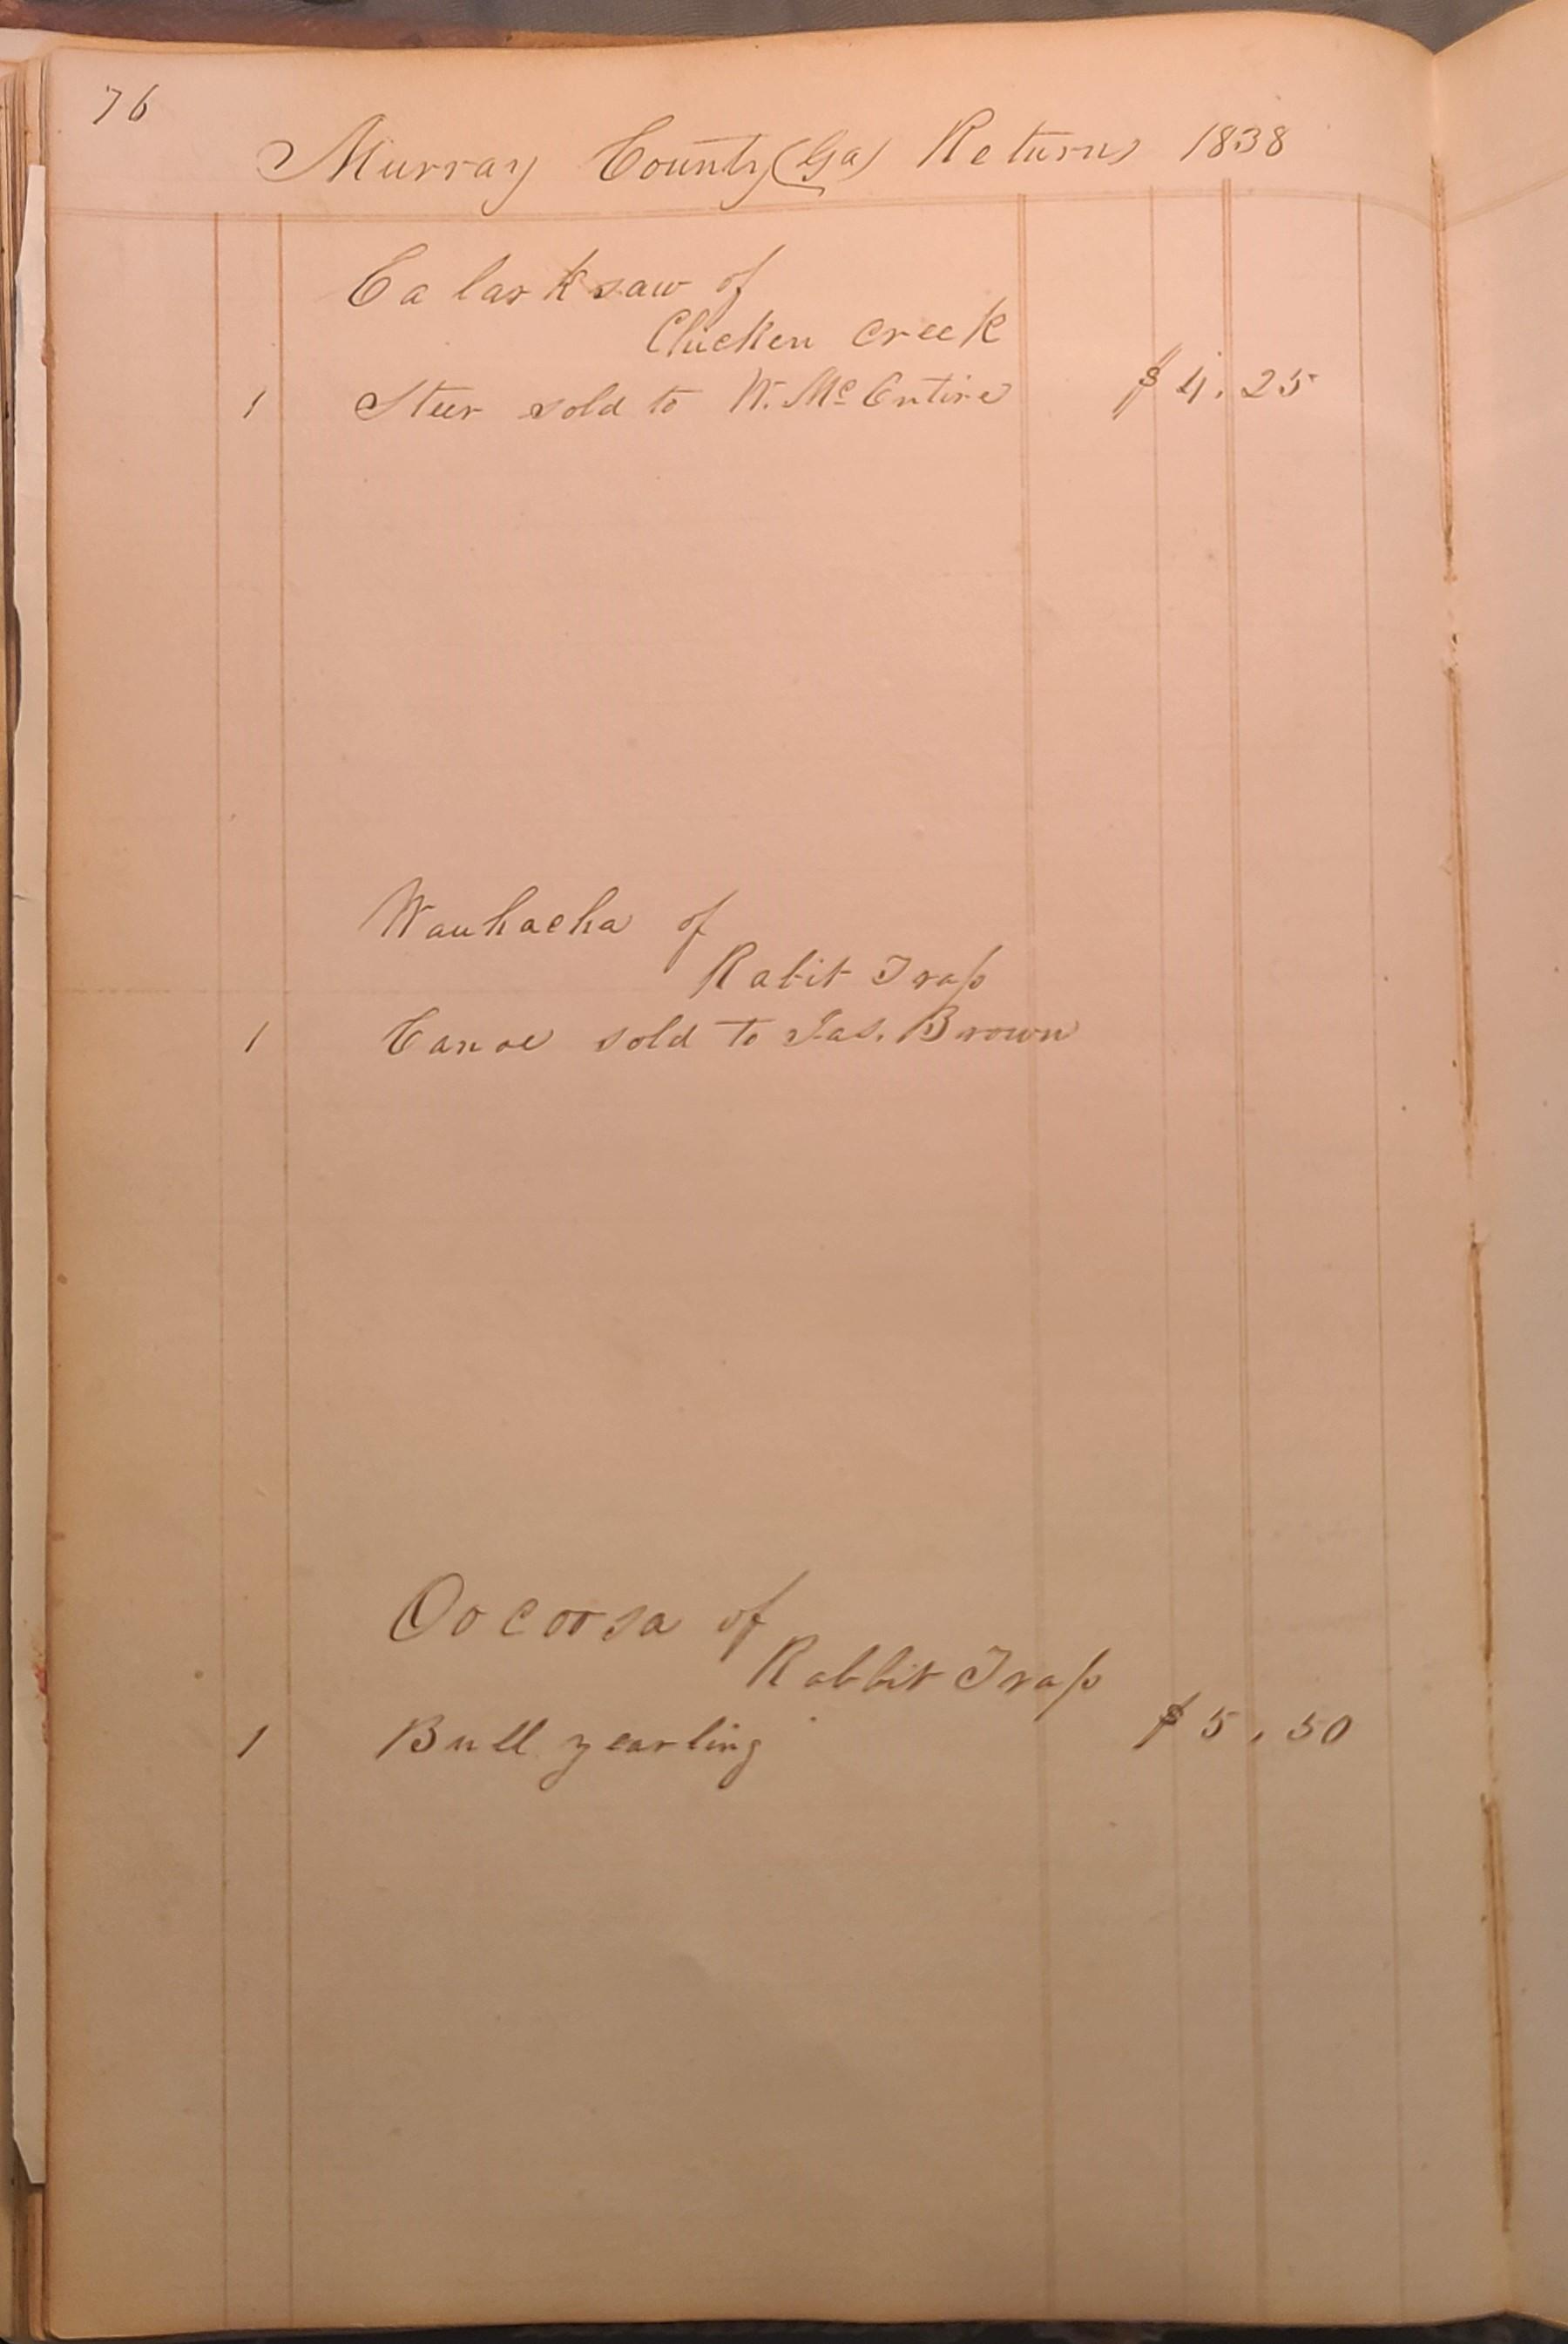 76
Murray County (Ga) Returns 1838
Ca lark saw of
Chicken Creek
1 Steer sold to W. McEntire $4.25
Wauhacha of
Rabit Trap
1 Canoe sold to Jas. Brown
Oo coo sa of
Rabbit Trap
1 Bull yearling $5.50